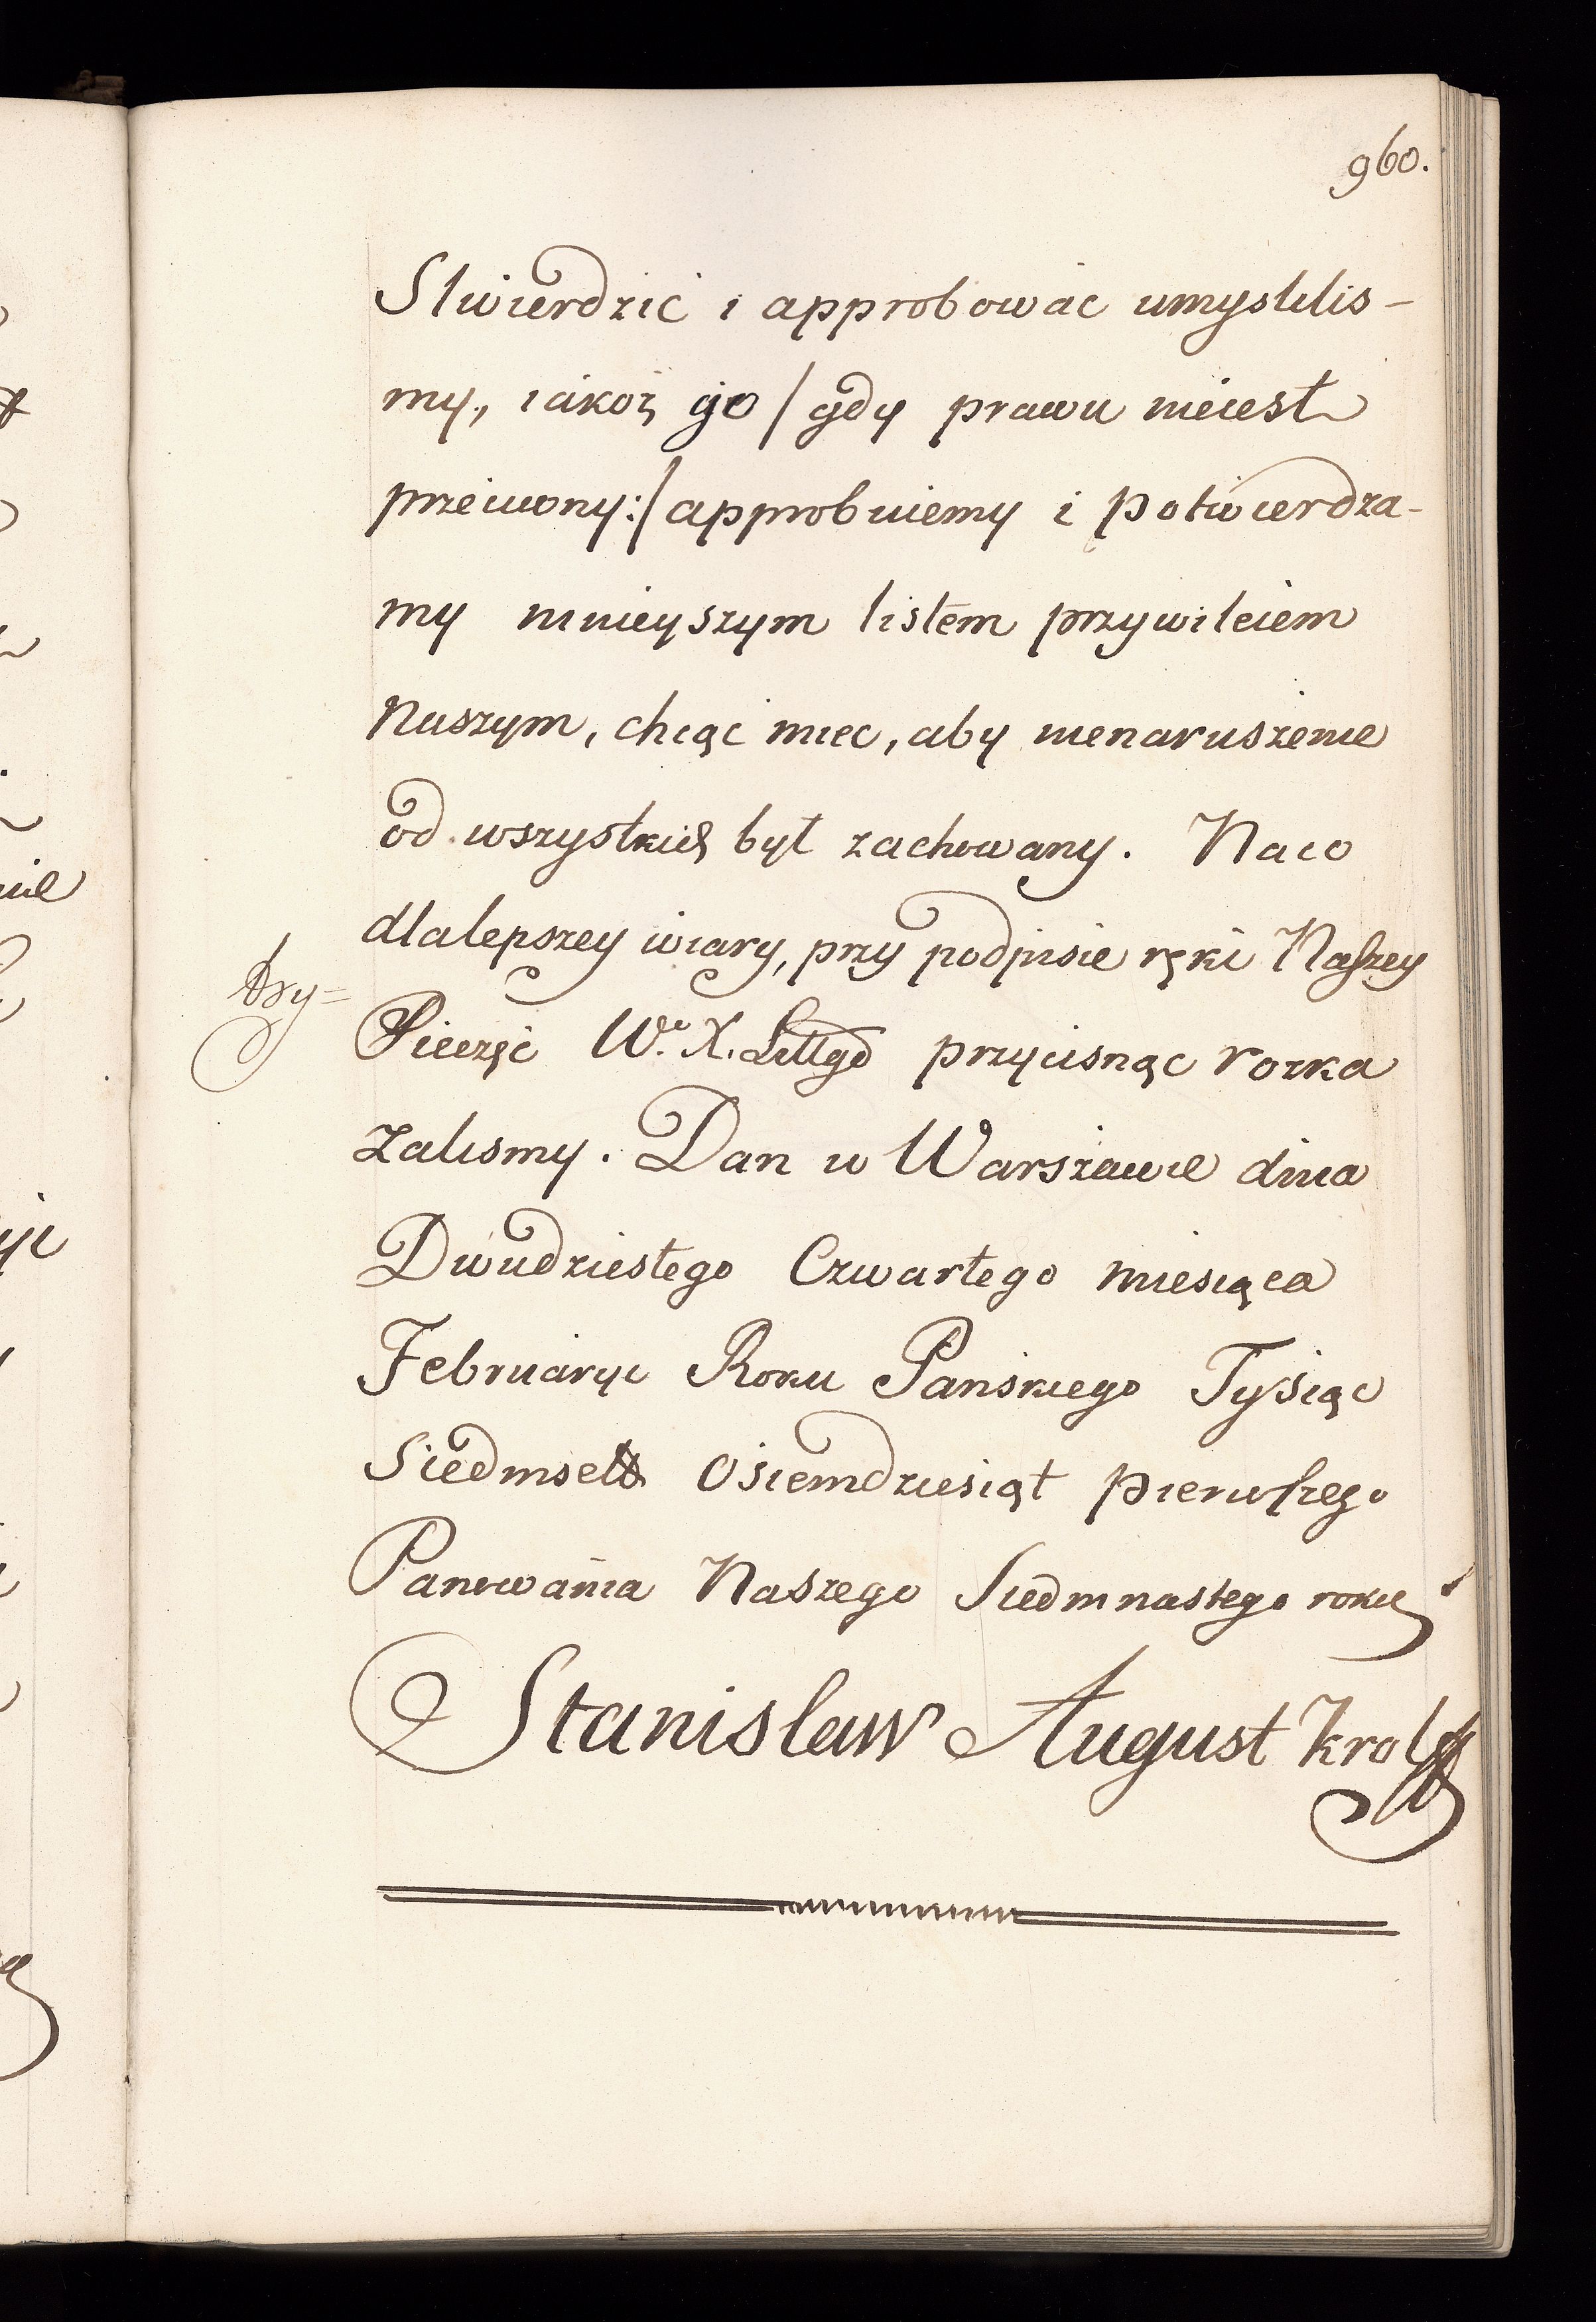 960.
Stwierdzić i approbować umyślilis-
my, iakoż go / gdy prawu nieiest
przeciwony:/ approbuiemy i potwierdza-
my ninieyszym listem przywileiem
Naszym, chcąc mieć, aby nienaruszenie
od wszystkich był zachowany. Naco
dlalepszey wiary, przy podpisie ręki Naszey
Pieczęć W.º X. Littgo przycisnąć rozka
zalismy. Dan w Warszawie dnia
Dwudziestego Czwartego miesiąca
Februaryi Roku Pańskiego Tysiąc
Siedmset Osiemdziesiąt pierwszego
Panowania Naszego Siedmnastego roku
Stanislaw August Krol